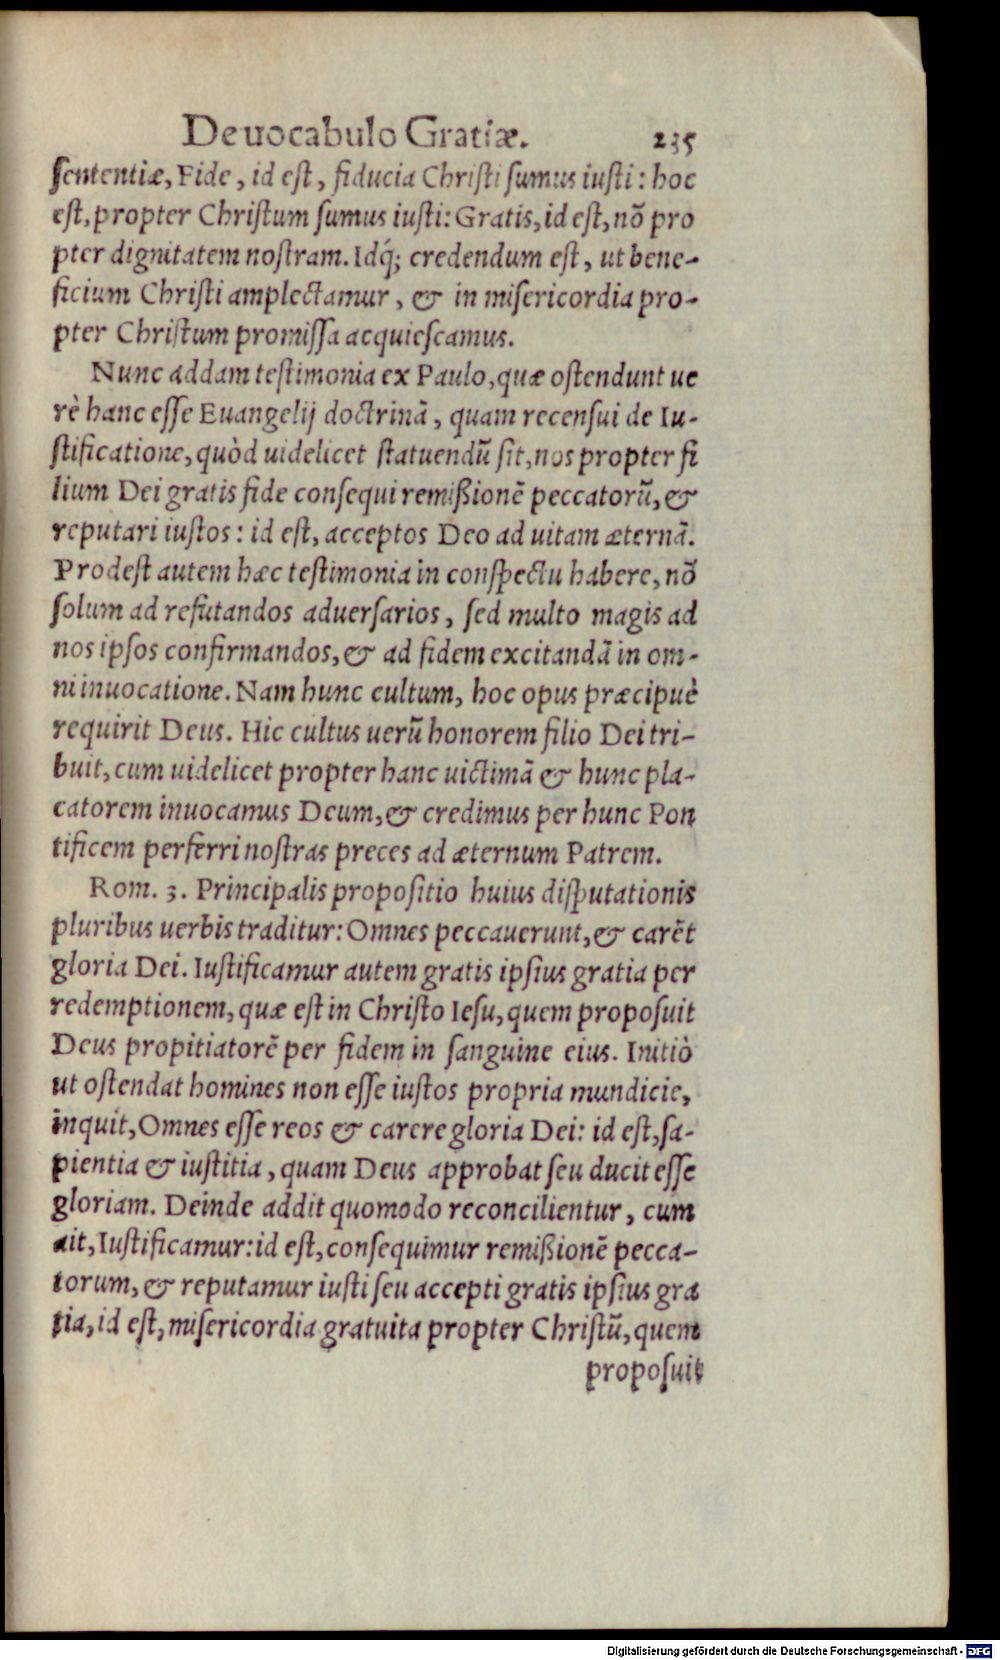 De uocabulo Gratiæ. 235
ſententiæ, Fide, id eſt, fiducia Chriſti ſumus iuſti: hoc
eſt, propter Chriſtum ſumus iuſti: Gratis, id eſt, nõ pro
pter dignitatem noſtram. Idq́; credendum eſt, ut bene-
ficium Chriſti amplectamur, & in miſericordia pro-
pter Chriſtum promiſſa acquieſcamus.
Nunc addam teſtimonia ex Paulo, quæ oſtendunt ue
rè hanc eſſe Euangelij doctrinã, quam recenſui de Iu-
ſtificatione, quòd uidelicet ſtatuendũ ſit, nos propter fi
lium Dei gratis fide conſequi remißionẽ peccatorũ, &
reputari iuſtos: id eſt, acceptos Deo ad uitam æternã.
Prodeſt autem hæc teſtimonia in conſpectu habere, nõ
ſolum ad refutandos aduerſarios, ſed multo magis ad
nos ipſos confirmandos, & ad fidem excitandã in om-
ni inuocatione. Nam hunc cultum, hoc opus præcipuè
requirit Deus. Hic cultus uerũ honorem filio Dei tri-
buit, cum uidelicet propter hanc uictimã & hunc pla-
catorem inuocamus Deum, & credimus per hunc Pon
tificem perferri noſtras preces ad æternum Patrem.
Rom. 3. Principalis propoſitio huius diſputationis
pluribus uerbis traditur: Omnes peccauerunt, & carẽt
gloria Dei. Iuſtificamur autem gratis ipſius gratia per
redemptionem, quæ eſt in Chriſto Ieſu, quem propoſuit
Deus propitiatorẽ per fidem in ſanguine eius. Initiò
ut oſtendat homines non eſſe iuſtos propria mundicie,
inquit, Omnes eſſe reos & carere gloria Dei: id eſt, ſa-
pientia & iuſtitia, quam Deus approbat ſeu ducit eſſe
gloriam. Deinde addit quomodo reconcilientur, cum
ait, Iuſtificamur: id eſt, conſequimur remißionẽ pecca-
torum, & reputamur iuſti ſeu accepti gratis ipſius gra
tia, id eſt, miſericordia gratuita propter Chriſtũ, quem
propoſuit
Digitalisierung gefördert durch die Deutsche Forschungsgemeinschaft - DFG